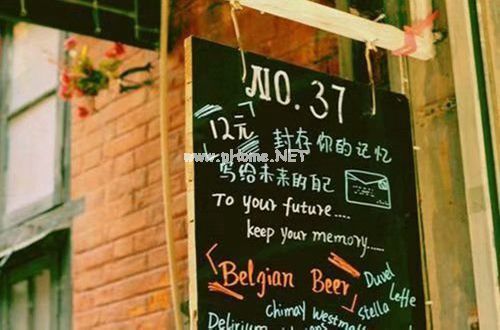 NO. 37
12元 封存你的记忆
www.pHome.NET
写给未来的自己
To your future....
keep your memory.....
Belgian Beer
Duvel
Leffe
Stella
chimay Westmall
Delirium